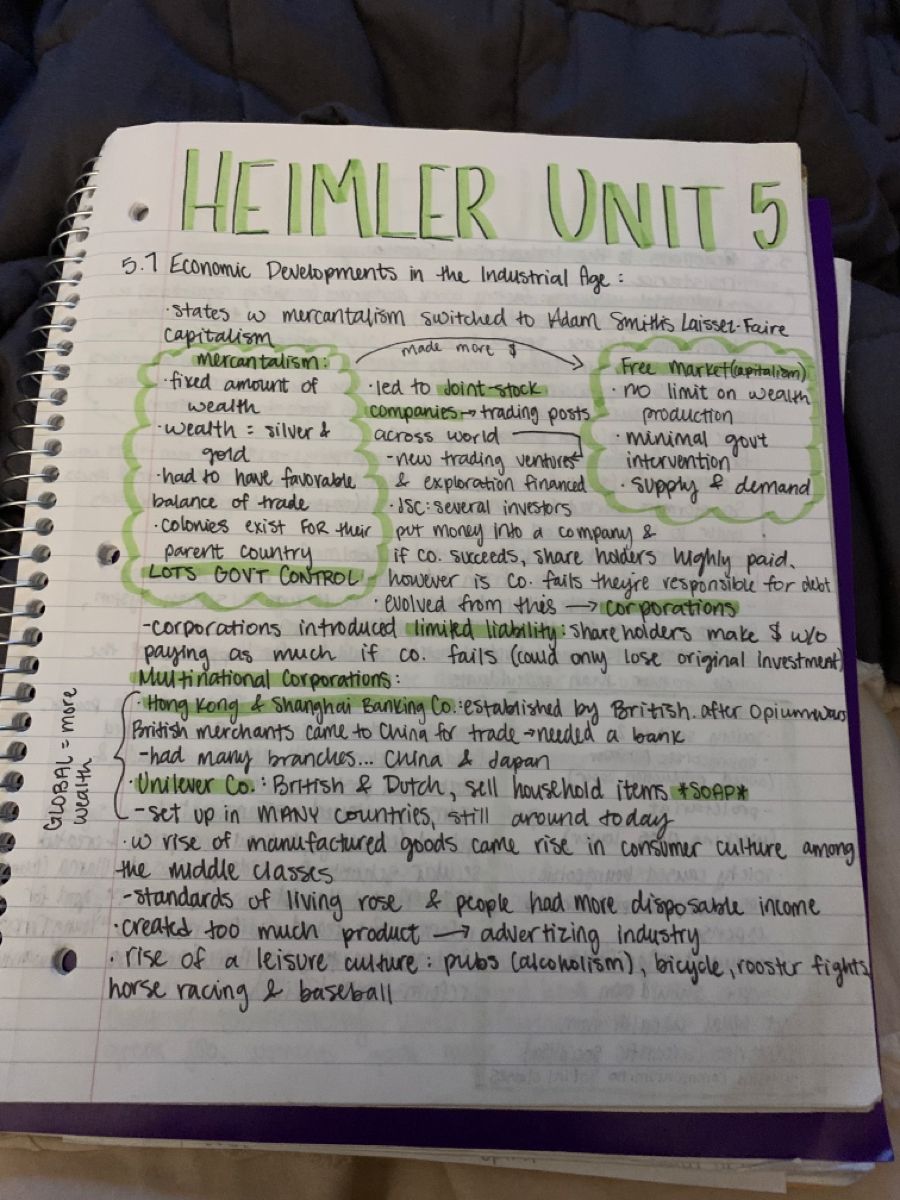 HEIMLER UNIT 5
5.7 Economic Developments in the Industrial Age:
·states w mercantalism switched to Adam Smith's Laissez-Faire
capitalism
mercantalism:
·fixed amount of
wealth
·wealth = silver &
gold
·had to have favorable
balance of trade
·colonies exist FOR their
parent country
LOTS GOVT CONTROL
made more $
Free market (capitalism)
·no limit on wealth
production
·minimal govt
intervention
·supply & demand
·led to joint-stock
companies → trading posts
across world
-new trading ventures
& exploration financed
·JSC: several investors
put money into a company &
if co. succeeds, share holders highly paid.
however is co. fails they're responsible for debt
·evolved from this → corporations
-corporations introduced limited liability: shareholders make $ w/o
paying as much if co. fails (could only lose original investment)
Multinational Corporations:
GLOBAL = more
wealth
·Hong Kong & Shanghai Banking Co.: established by British. after Opium wars
British merchants came to China for trade → needed a bank
-had many branches... China & Japan
·Unilever Co.: British & Dutch, sell household items *SOAP*
-set up in MANY countries, still around today
·w rise of manufactured goods came rise in consumer culture among
the middle classes
-standards of living rose & people had more disposable income
·created too much product → advertizing industry
·rise of a leisure culture: pubs (alcoholism), bicycle, rooster fights,
horse racing & baseball